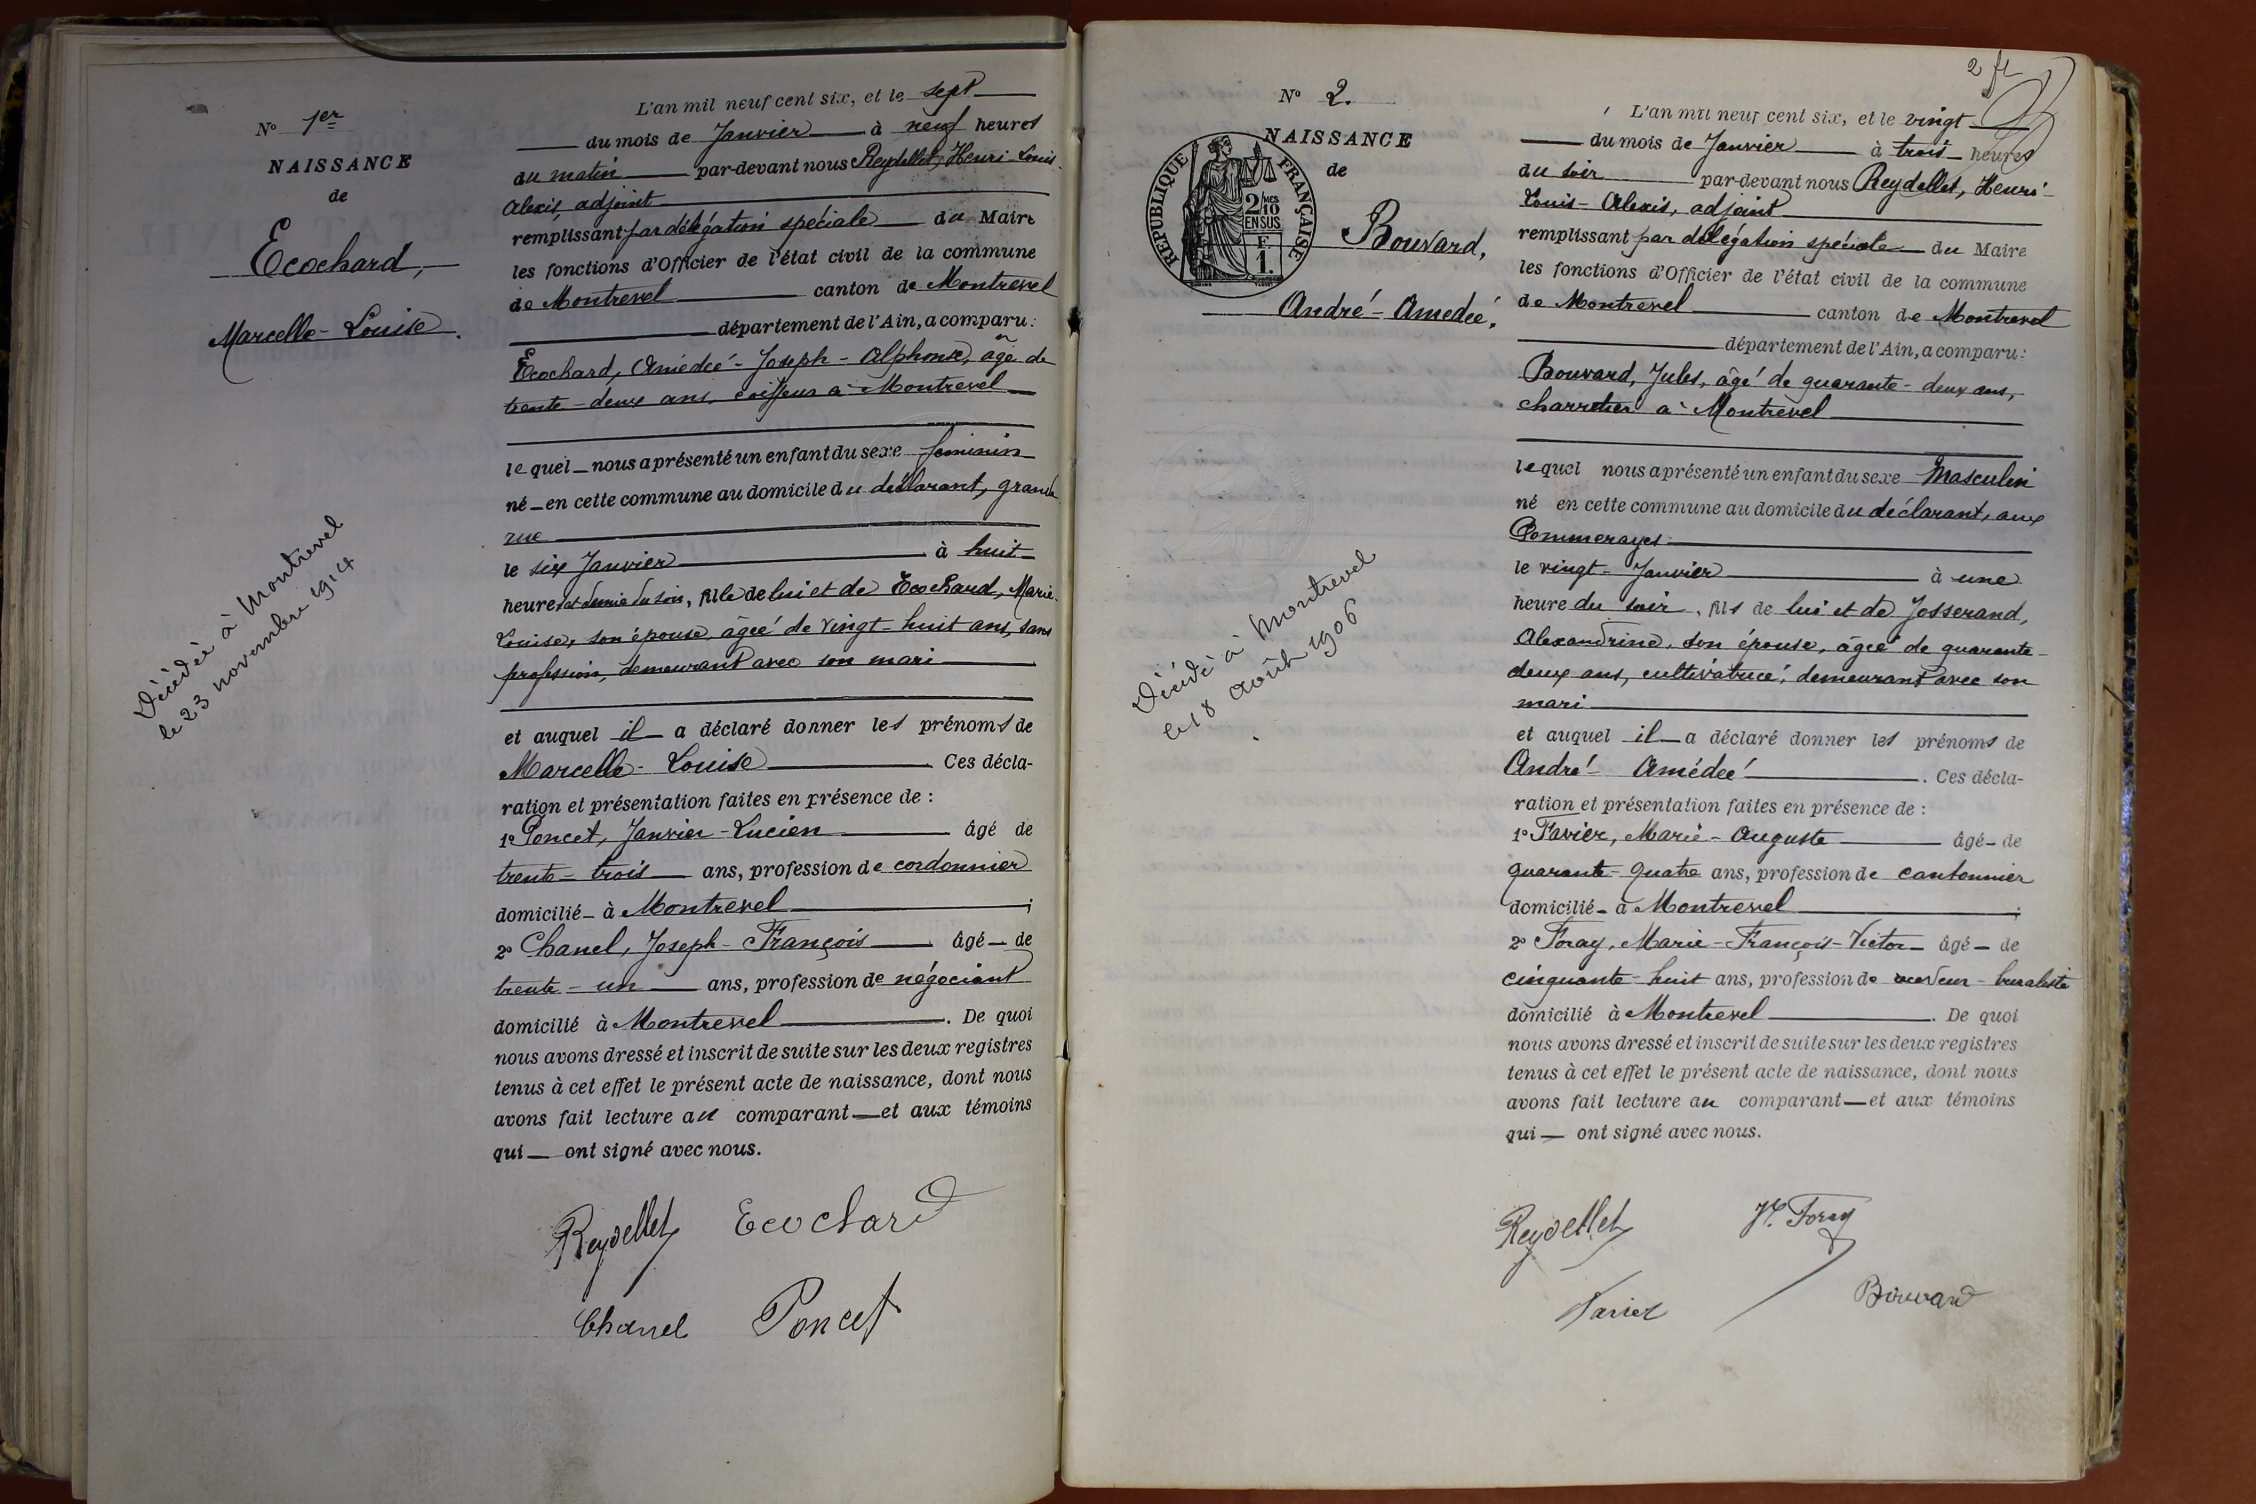 N° 1er
NAISSANCE
de
Ecochard,
Marcelle-Louise.
Décédée à Montrevel
le 23 novembre 1914
L'an mil neuf cent six, et le sept
du mois de Janvier à neuf heures
du matin par-devant nous Reydellet, Henri-Louis-
Alexis, adjoint
remplissant par délégation spéciale du Maire
les fonctions d'Officier de l'état civil de la commune
de Montrevel canton de Montrevel
département de l'Ain, a comparu:
Ecochard, Amédée-Joseph-Alphonse, âgé de
trente-deux ans, coiffeur à Montrevel
lequel nous a présenté un enfant du sexe féminin
né en cette commune au domicile du déclarant, grande
rue
le six Janvier à huit
heures et demie du soir, fille de lui et de Ecochard, Marie-
Louise, son épouse, âgée de vingt-huit ans, sans
profession, demeurant avec son mari
et auquel il a déclaré donner les prénoms de
Marcelle-Louise Ces décla-
ration et présentation faites en présence de:
1° Poncet, Janvier-Lucien âgé de
trente-trois ans, profession de cordonnier
domicilié à Montrevel;
2° Chanel, Joseph-François âgé de
trente-un ans, profession de négociant
domicilié à Montrevel. De quoi
nous avons dressé et inscrit de suite sur les deux registres
tenus à cet effet le présent acte de naissance, dont nous
avons fait lecture au comparant et aux témoins
qui ont signé avec nous.
Reydellet Ecochard
Chanel Poncet
2 ft
N° 2.
NAISSANCE
de
RÉPUBLIQUE FRANÇAISE
2/10 MES
EN SUS
F.
1.
Bouvard,
André-Amédée.
Décédé à Montrevel
le 18 août 1906
L'an mil neuf cent six, et le vingt
du mois de Janvier à trois heures
du soir par-devant nous Reydellet, Henri-
Louis-Alexis, adjoint
remplissant par délégation spéciale du Maire
les fonctions d'Officier de l'état civil de la commune
de Montrevel canton de Montrevel
département de l'Ain, a comparu:
Bouvard, Jules, âgé de quarante-deux ans,
charretier à Montrevel
lequel nous a présenté un enfant du sexe Masculin
né en cette commune au domicile du déclarant, aux
Pommerayes
le vingt-Janvier à une
heure du soir, fils de lui et de Josserand,
Alexandrine, son épouse, âgée de quarante-
deux ans, cultivatrice, demeurant avec son
mari
et auquel il a déclaré donner les prénoms de
André-Amédée. Ces décla-
ration et présentation faites en présence de:
1° Favier, Marie-Auguste âgé de
quarante-quatre ans, profession de cantonnier
domicilié à Montrevel;
2° Foray, Marie-François-Victor âgé de
cinquante-huit ans, profession de receveur-buraliste
domicilié à Montrevel. De quoi
nous avons dressé et inscrit de suite sur les deux registres
tenus à cet effet le présent acte de naissance, dont nous
avons fait lecture au comparant et aux témoins
qui ont signé avec nous.
Reydellet Foray
Favier Bouvard